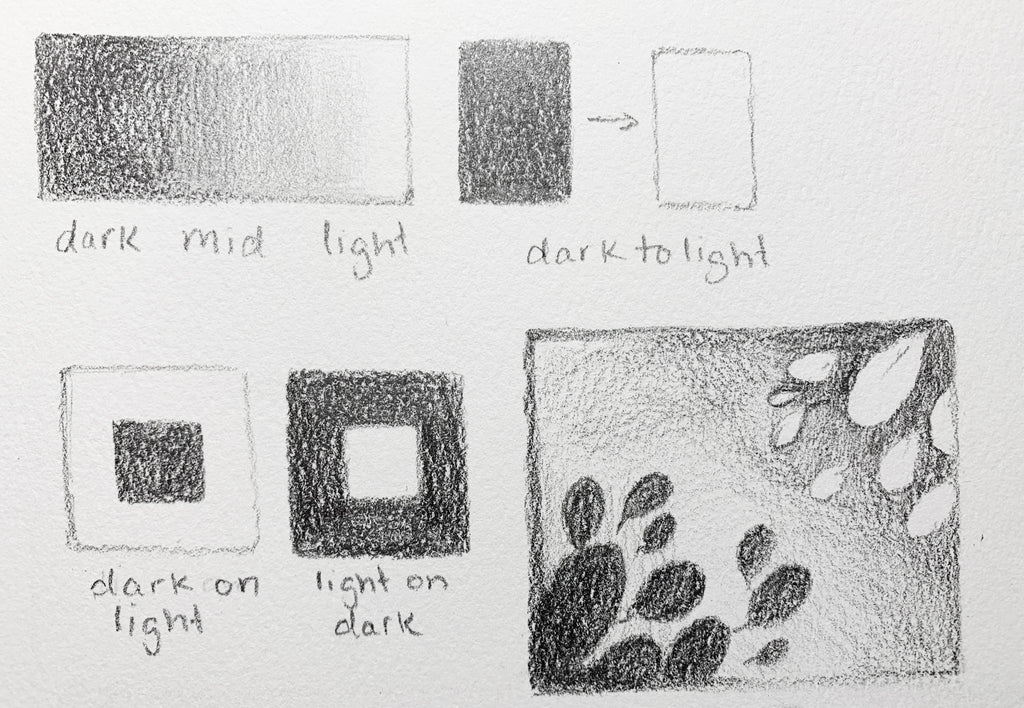 dark mid light
dark to light
dark on
light
light on
dark